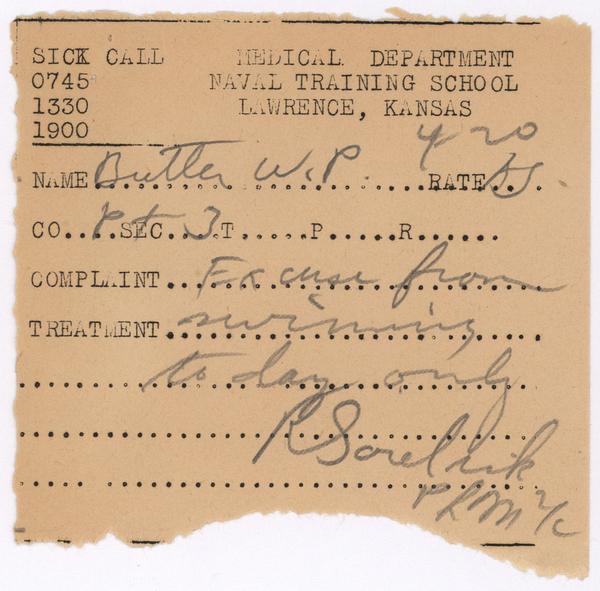 SICK CALL MEDICAL DEPARTMENT
0745 NAVAL TRAINING SCHOOL
1330 LAWRENCE, KANSAS
1900 4-20
NAME Butler W.P. RATE AS
CO....Pt SEC...3 T......P......R.......
COMPLAINT Excuse from
TREATMENT swimming
today only
R
PhM 2/c